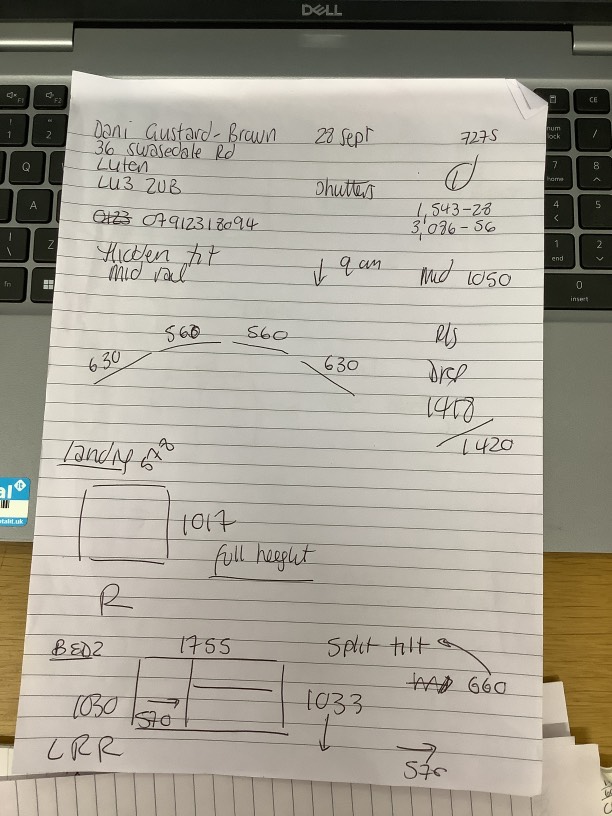 DELL
Dani Gustard-Brown 28 Sept 7275
36 Swasedale Rd
Luton
LU3 2UB Shutters 1
1,543-28
0123 07912318094 3,086-56
Hidden tilt
Mid rail ↓ 9am Mid 1050
560 560 R/S
630 630 Drop
1418
1420
Landing
1017
Full height
R
BED2 1755 Split tilt
660
1030 570 1033
LRR 575